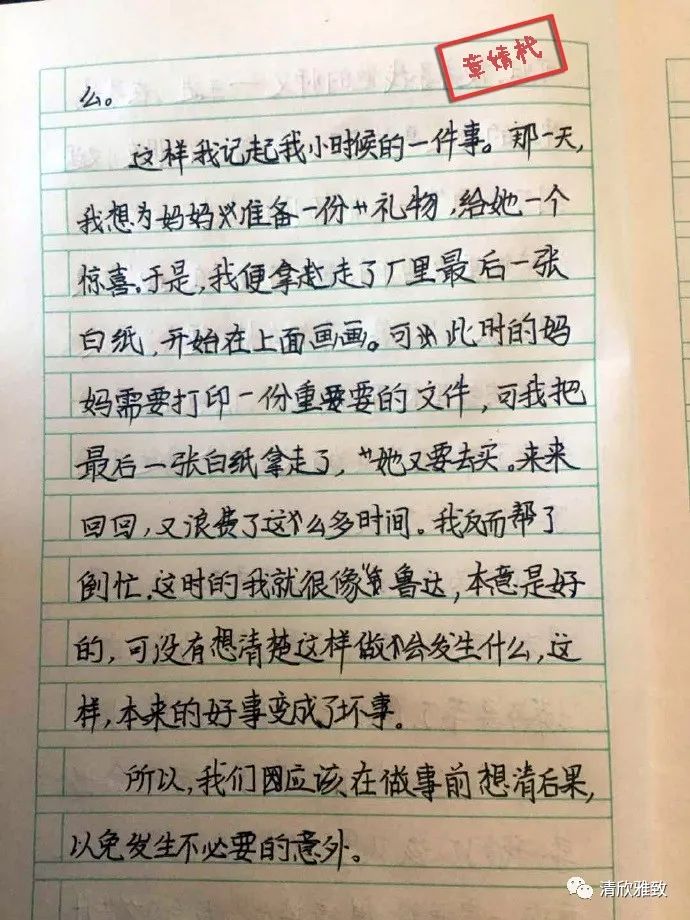 章婧杙
么。
这样我记起我小时候的一件事。那一天,
我想为妈妈准备一份礼物,给她一个
惊喜。于是,我便拿走了厂里最后一张
白纸,开始在上面画画。可此时的妈
妈需要打印一份重要的文件,可我把
最后一张白纸拿走了,她又要去买。来来
回回,又浪费了这么多时间。我反而帮了
倒忙。这时的我就很像鲁达,本意是好
的,可没有想清楚这样做会发生什么,这
样,本来的好事变成了坏事。
所以,我们应该在做事前想清后果,
以免发生不必要的意外。
清欣雅致